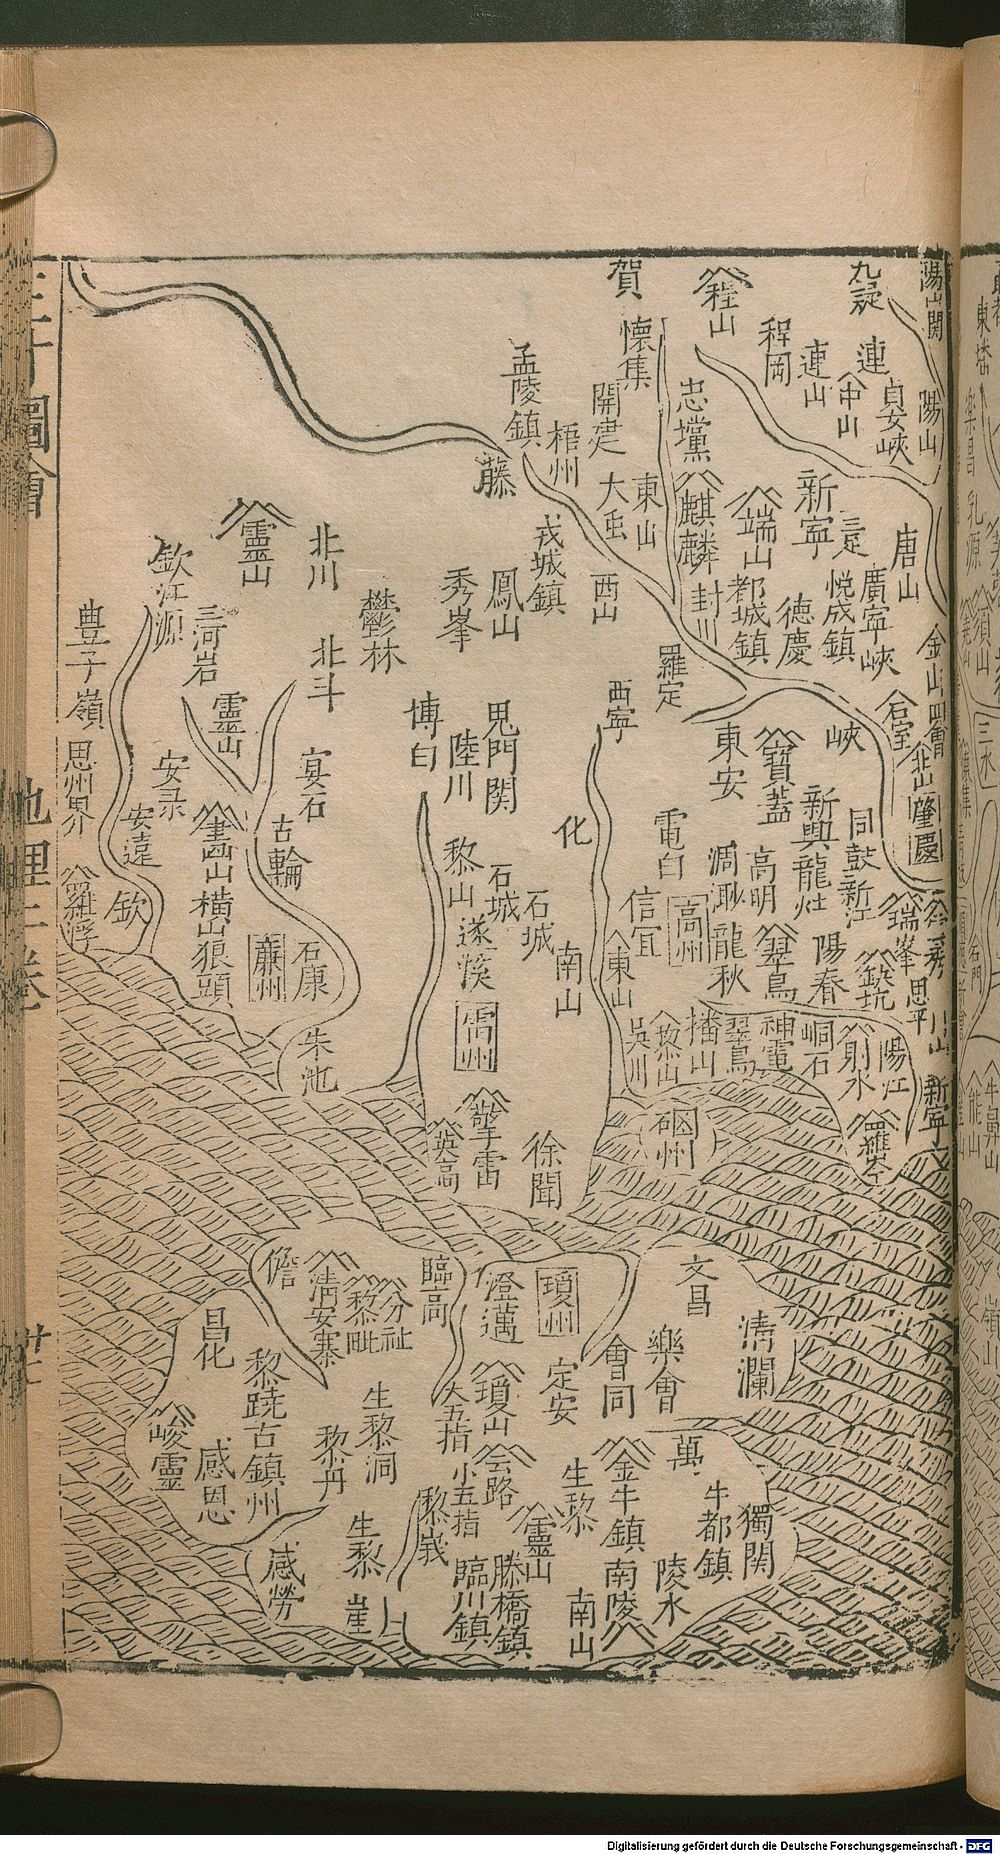 陽山関
陽山
九疑
連
貞女峽
中山
連山
程岡
程山
賀
懷集
開建
忠黨
孟陵鎮
梧州
藤
大虫
東山
麒麟
端山
新寧
唐山
戎城鎮
西山
封川
都城鎮
德慶
悦成鎮
廣寧峽
金山
四會
鳳山
秀峯
鬱林
北川
北斗
靈山
欽江源
三河岩
豊子嶺
靈山
羅定
西寧
石室
峽
東安
寶蓋
肇慶
新興
同鼓
新江
博白
陸川
鬼門関
宴石
思州界
安遠
古輪
化
電白
高明
龍灶
黎山
石城
石城
羅浮
欽
畫山
橫山
狼頭
廉州
石康
遂溪
南山
信宜
高州
龍秋
翠鳥
陽春
瑞峯
思平
東山
朱池
雷州
吳川
黎山
播山
翠鳥
神電
峒石
射水
陽江
新寧
擎雷
英高
徐聞
硇州
儋
清安寨
黎毗
分祉
臨高
澄邁
瓊州
文昌
清瀾
昌化
定安
會同
樂會
瓊山
大五指
生黎洞
黎丹
峻靈
感恩
萬
金牛鎮
生黎
小五指
生黎
感勞
崖
臨川鎮
勝橋鎮
靈山
南山
南陵
陵水
牛都鎮
獨関
三才圖會
地理三卷
Digitalisierung gefördert durch die Deutsche Forschungsgemeinschaft - DFG